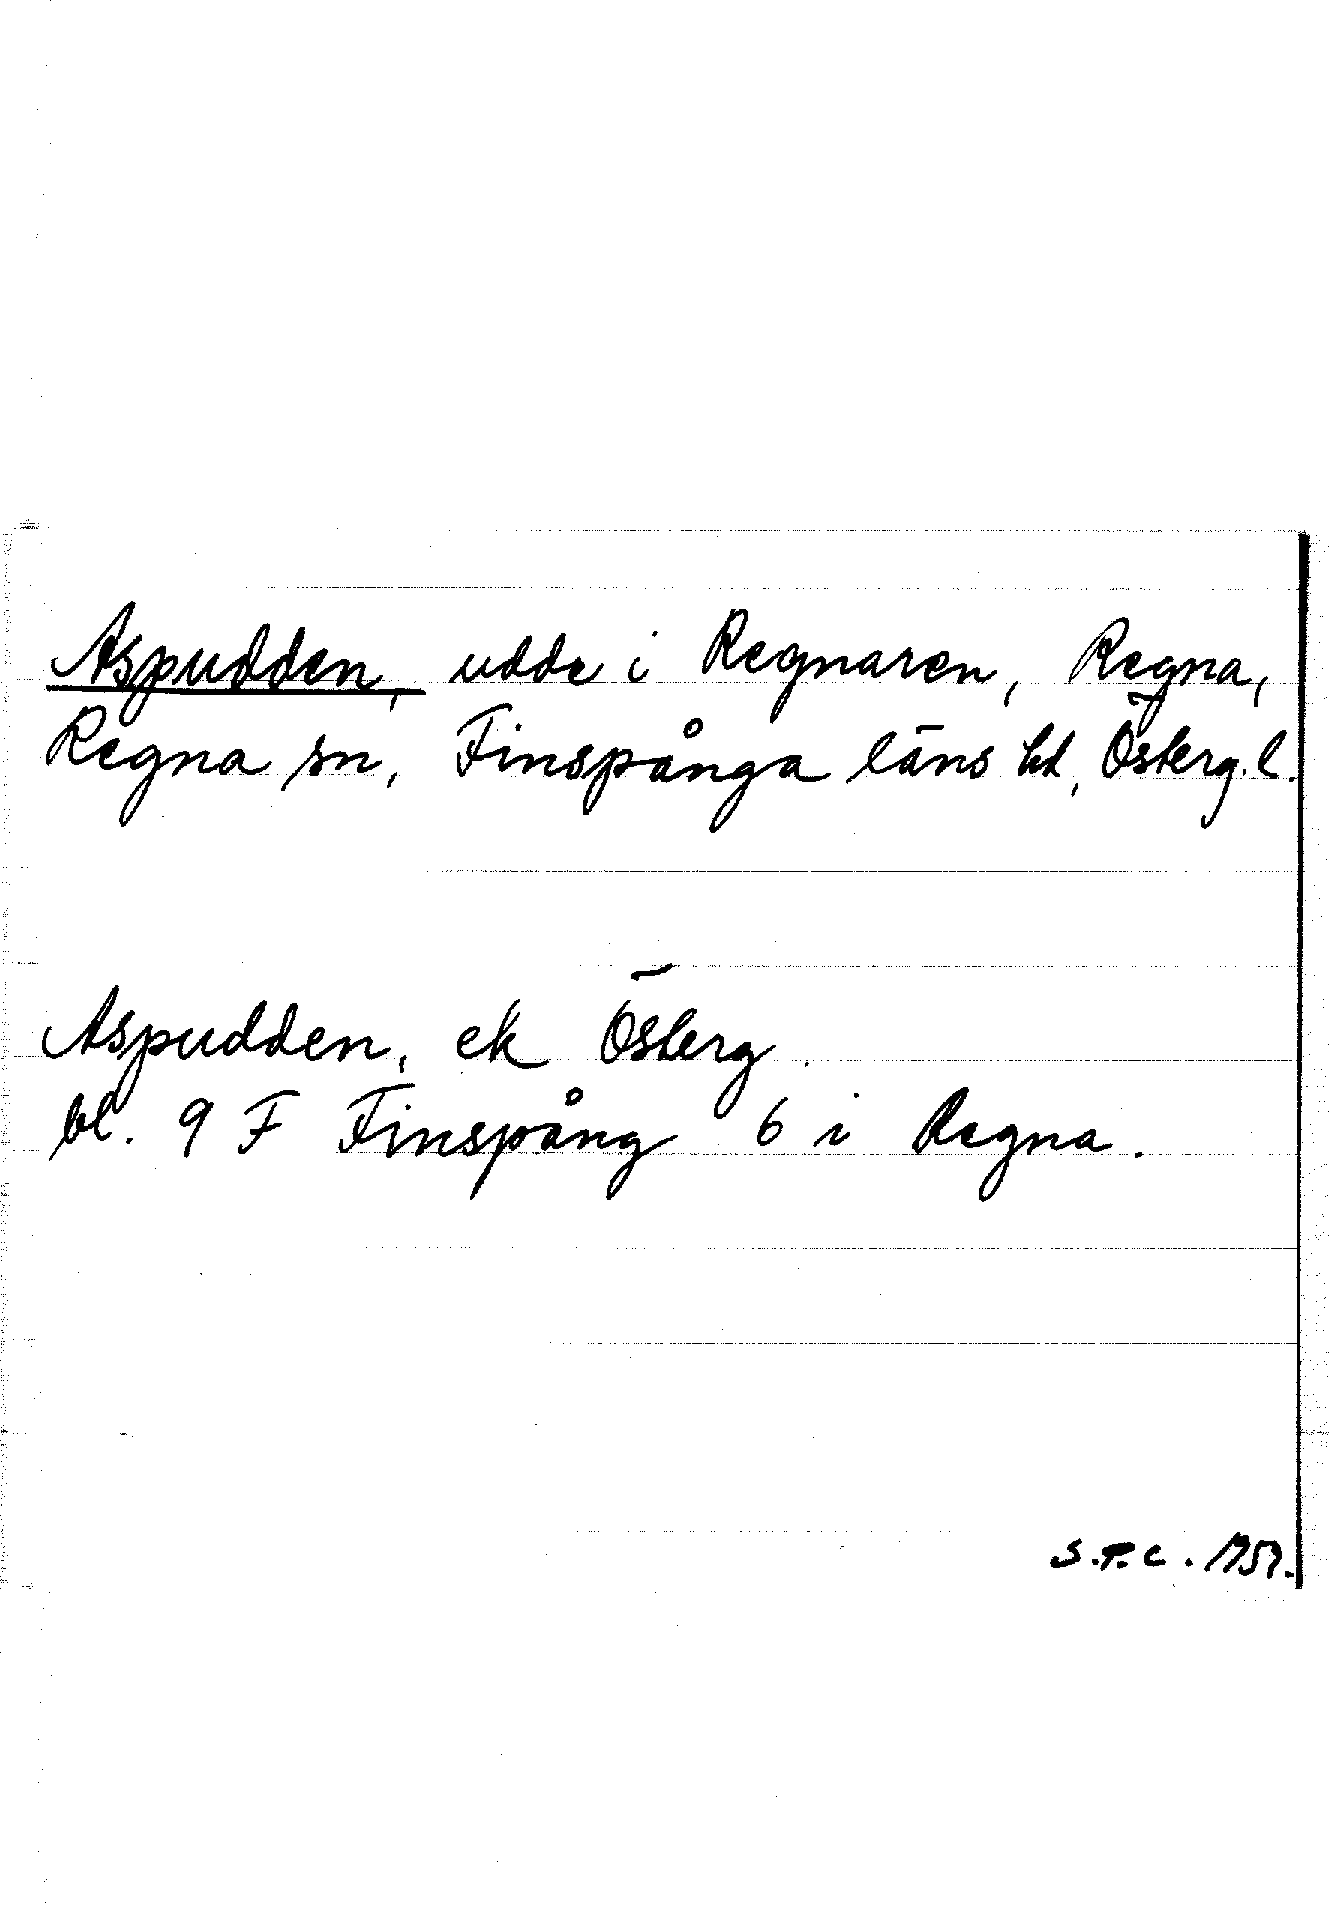 Aspudden, udde i Regnaren, Regna,
Regna sn, Finspånga läns hd, Österg. l.
Aspudden, ek Österg.
bl. 9 F Finspång 6 i Regna.
S.P.C. 1957.